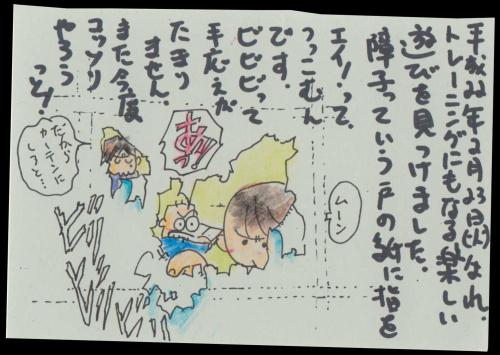 平成22年2月23日(火)なれ.
トレーニングにもなる楽しい
遊びを見つけました。
障子っていう戸の紙に指を
エイ!って
つっこむん
です.
ビビビって
手応えが
たまり
ません.
また今度
コッソリ
やろう
っと!
ムーン
あっ!
だから
カーテンに
しろと…
ビリ
ビリビリ